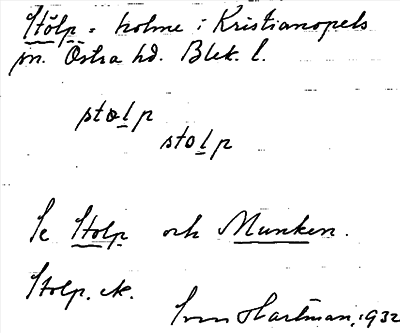 Stölp = holme i Kristianopels
sn. Östra hd. Blek. l.
stølp
stolp
Se Stolp och Munken.
Stolp. ek.
Sven Hartman, 1932